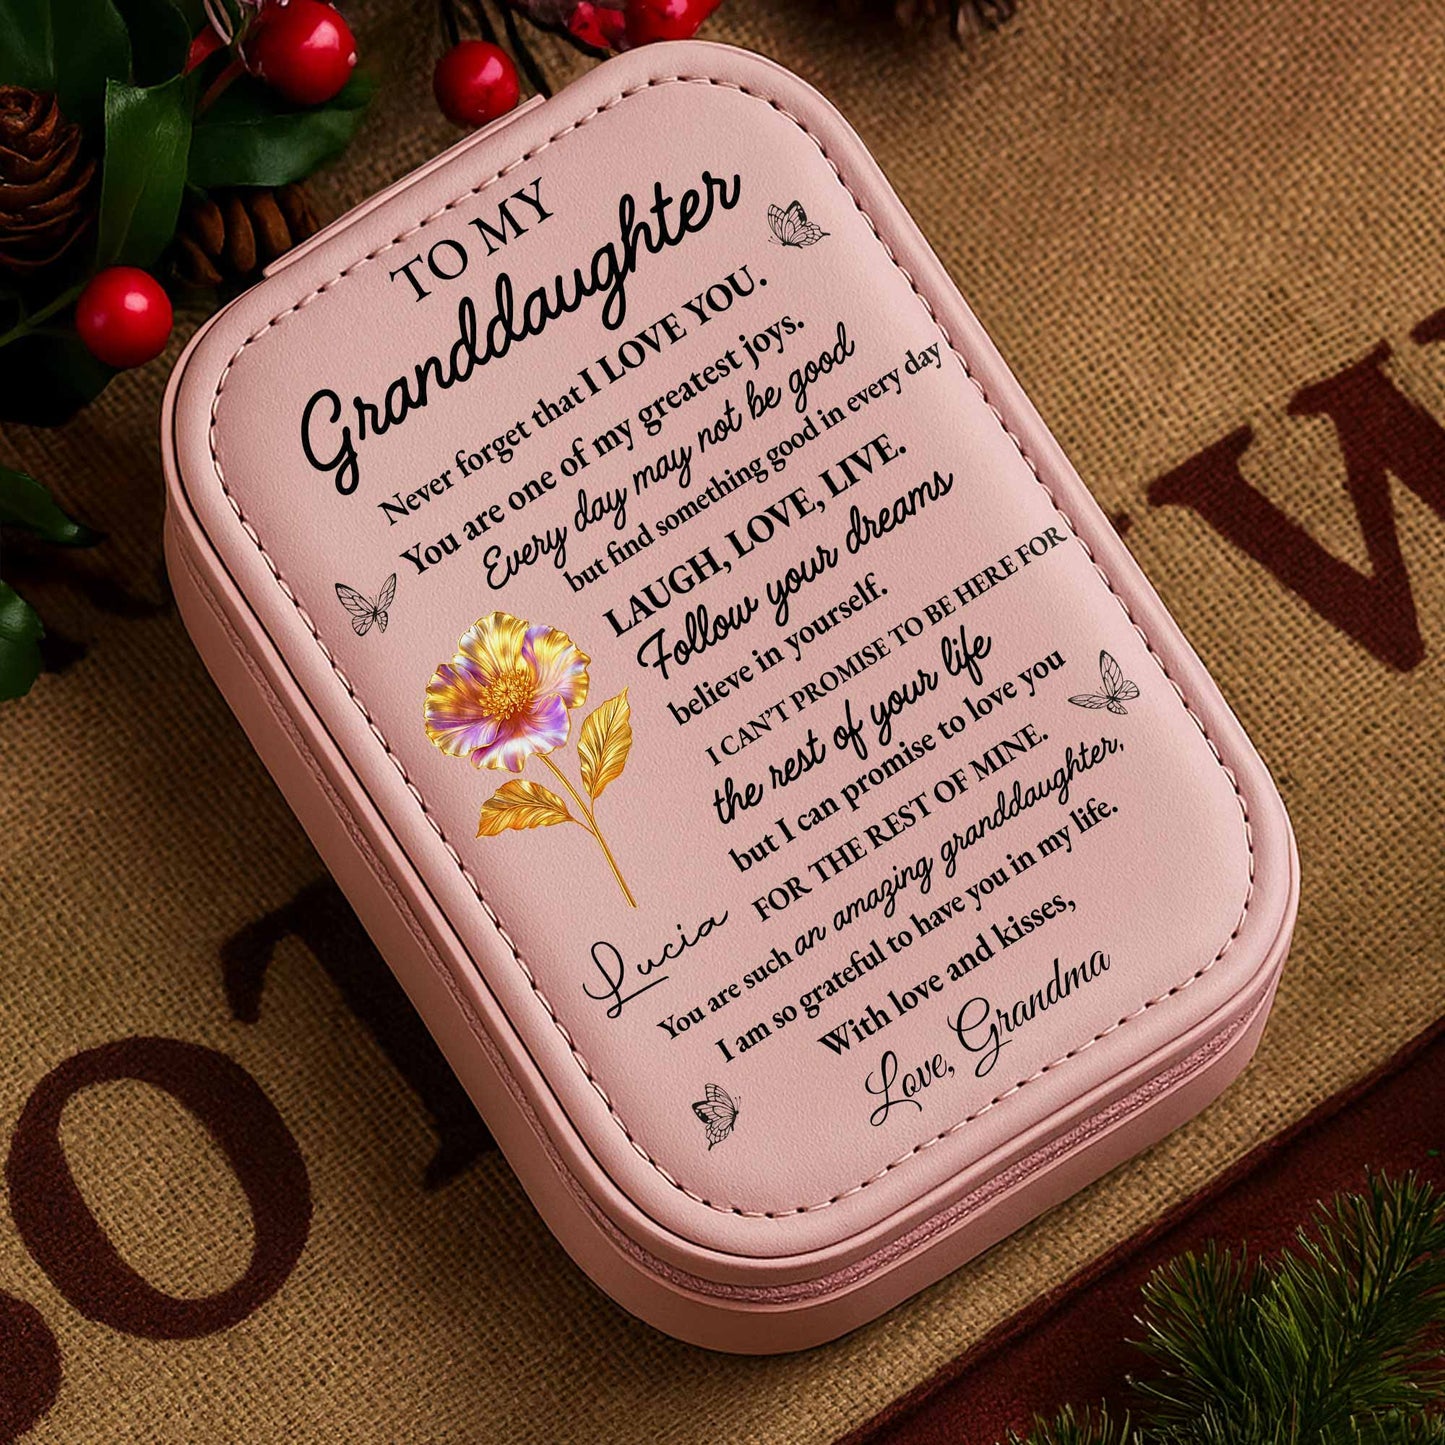 TO MY
Granddaughter
Never forget that I LOVE YOU.
You are one of my greatest joys.
Every day may not be good
but find something good in every day
LAUGH, LOVE, LIVE.
Follow your dreams
believe in yourself.
I CAN'T PROMISE TO BE HERE FOR
the rest of your life
but I can promise to love you
FOR THE REST OF MINE.
Lucia
You are such an amazing granddaughter,
I am so grateful to have you in my life.
With love and kisses,
Love, Grandma